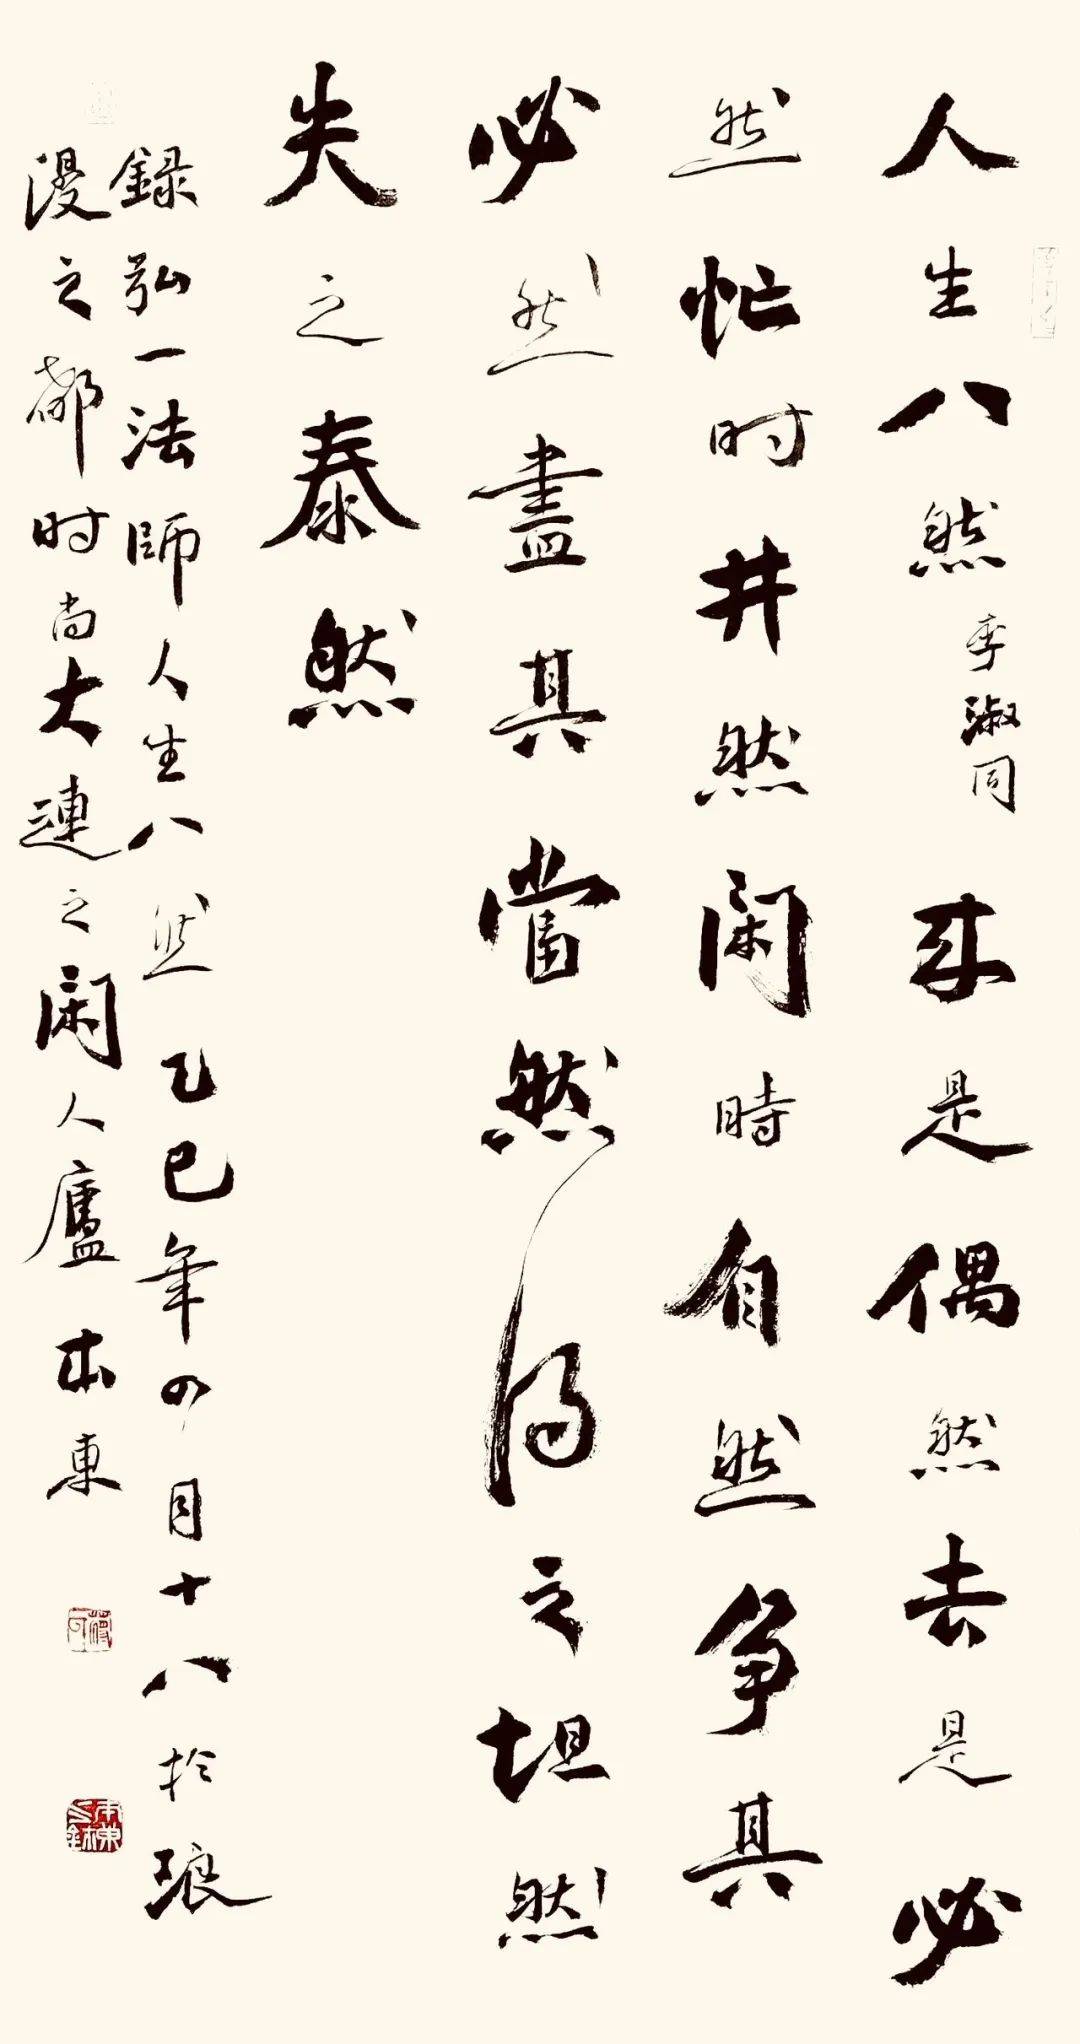 人生八然李淑同来是偶然去是必
然忙时井然闲時自然争其
必然盡其當然得之坦然
失之泰然
録弘一法師人生八然乙巳年四月十八於浪
漫之都时尚大連之闲人廬本東